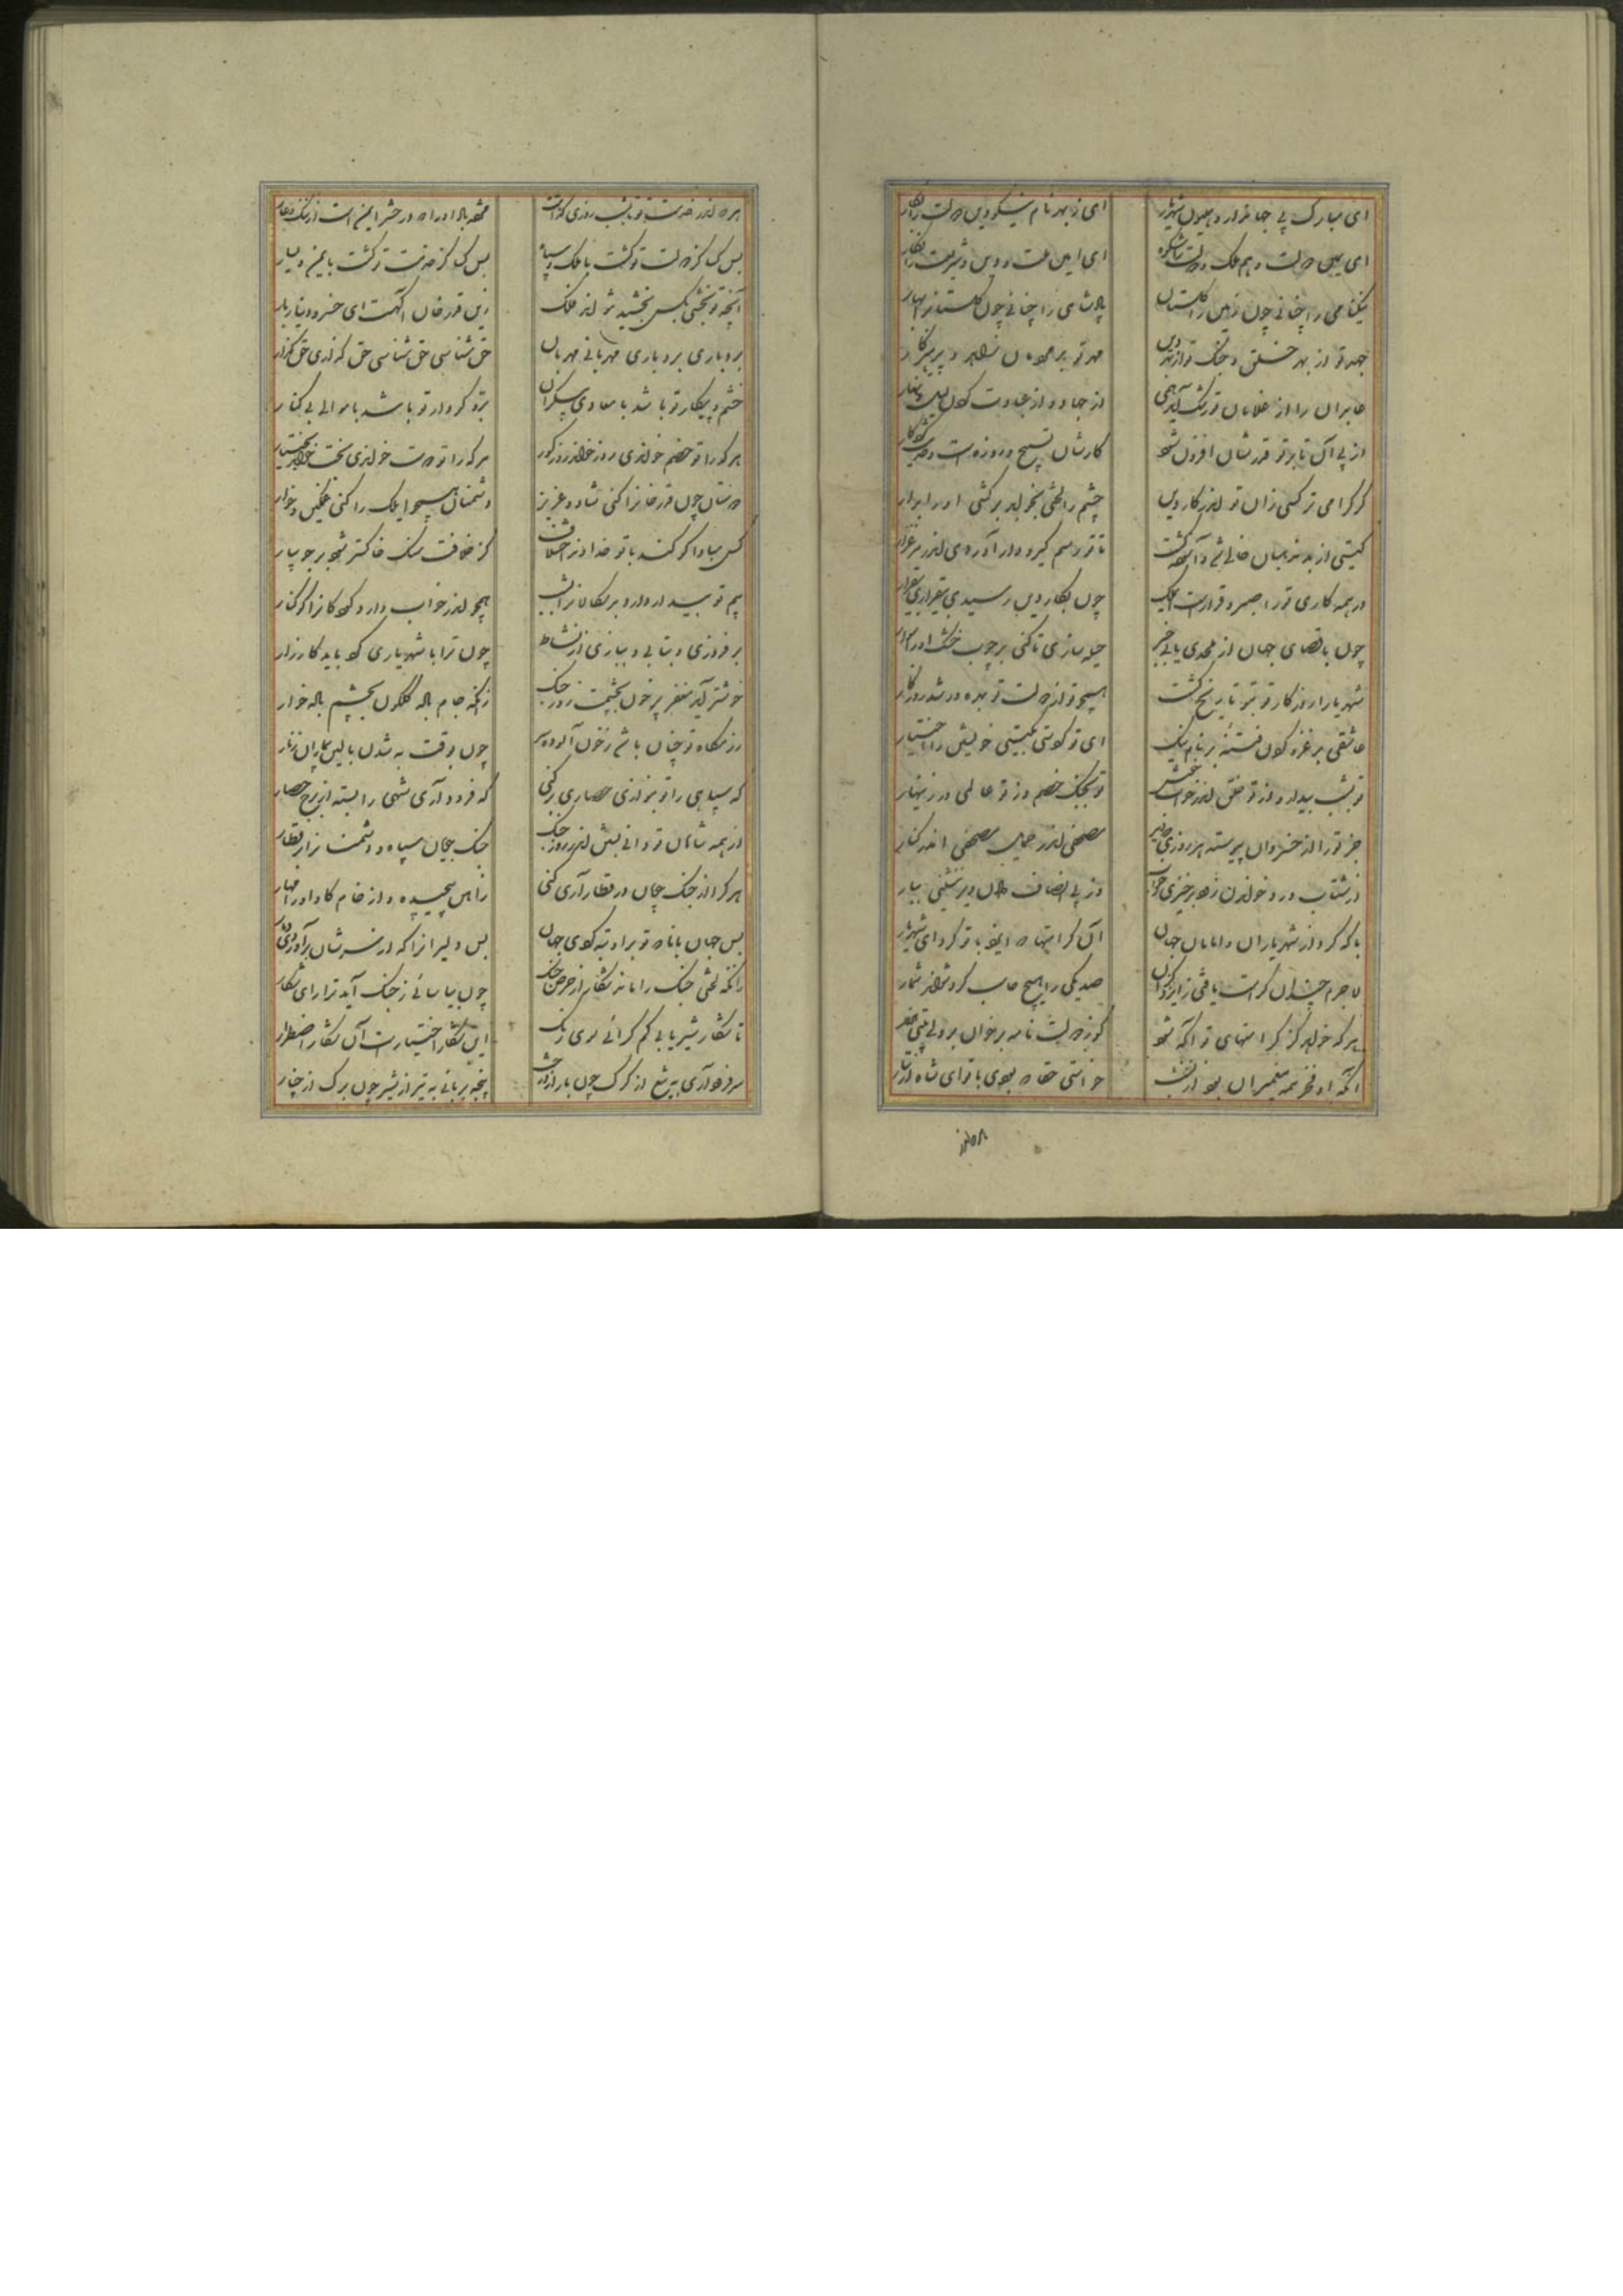 ای مبارک پی جهاندار و همایون شهریار
ای ز بهر نام نیکو دین و دولت را بکار
ای یمین دولت و هم ملک و دولت را شکوه
ای امین ملت و دین و شریعت را
نیکنامی را چنانی چون زمین را گلستان
پادشاهی را چنانی چون گلستان را بهار
جهد تو از بهر خلق و جنگ تو از بهر دین
مهر تو بر مؤمنان
عابدان را از غلامان تو رشک آید همی
از جهاد و از عبادت کردن لیل و نهار
از پی آن تا بر تو قدرشان افزون شود
کارشان تسبیح و روزه است و حدیث کردگار
گر گرامی تر کسی زان تو اندر کار دین
چشم را لختی بخواباند بر کشی او را بدار
گیتی از بد مذهبان خالی شد و آسوده گشت
تا تو رسم گیر و دار آورده‌ای اندر
در همه کاری تو را صبر و قرارست ای ملک
چون بکار دین رسیدی بیقراری بیقرار
چون باقصای جهان از ملحدی یابی خبر
حیله سازی تا کنی بر چوب خشک او را سوار
شهریارا روزگار تو بتو تاریخ گشت
همچو تو از دولت تو بهره ور شد روزگار
عاشقی بر غزو کردن فتنه‌ای بر نام نیک
ای تو کردستی بگیتی خویشتن را اختیار
تو بشب بیدار و از تو خلق اندر خواب خوش
تو بجنگ خصم و از تو عالمی در زینهار
جز تو را از خسروان پیوسته هر روزی که دید
مصحفی اندر حمایل مصحفی اندر کنار
از شتاب ورد خواندن زود برخیزی ز خواب
وز پی انصاف دادن دیر بنشینی ببار
با که کرد از شهریاران و امامان جهان
آن کرامتها که ایزد با تو کرد ای شهریار
لاجرم چندان کرامت یافتی ز ایزد کزان
صد یکی را هیچ حاسب کرد نتواند شمار
هر که خواهد کز کرامتهای تو آگه شود
گو ز دولت نامه بر خوان بر ولی بیتی هزار
آنکه او فخر همه پیغمبران بود از نخست
خواستی تا که بودی با تو ای شاه از تبار
هر که اندر خدمت تو یا شب روزی گذاشت
عهد بالله ار او را در حشر ایمن است از ننگ و عار
بس کسا کز دولت تو گشت با ملک و سپاه
بس کسا کز خدمت تو گشت با یمن و یسار
آنچه تو بخشی بکس بخشید نتواند فلک
زین قدرخان آگهست ای خسرو دینار بار
بردباری بردباری مهربانی مهربان
حق شناسی حق شناسی حق گذاری حق گذار
خشم و پیکار تو باشد با معادی بیکران
بر و کردار تو باشد با موالی بی کنار
هر که را تو خصم خواندی روز خواند روز کور
هر که را تو دوست خواندی بخت خواند بختیار
دوستان چون قدرخان را کنی شاد و عزیز
دشمنان همچو ایلک را کنی غمگین و خوار
کس مبادا کو کند با تو خداوندا خلاف
کز خلافت سنگ خاکستر شود بر جویبار
بیم تو بیدار دارد بدسگالان را بشب
همچو اندر خواب دارد کودکان را کوکنار
بر فروزی و بتابی و بنازی از نشاط
چون ترا با شهریاری کرد باید کارزار
خوشتر آید مغفر پر خون بچشمت روز جنگ
زانکه جام باده گلگون بچشم باده خوار
رزمگاه تو چنان باشد ز خون آلوده سر
چون بوقت به شدن بالین بیماران ز نار
گه سپاهی را تو براندازی حصاری برکنی
گه فرود آری شهی را بسته از برج حصار
از همه شاهان تو دانی پیش اندر روز جنگ
جنگجویان سپاه دشمنان را در قطار
هر که را از جنگجویان در قطار آری کنی
زاهن پیچیده و از خام گاو او را مهار
بس جهانبانا که تو بر او تبه کردی جهان
بس دلیرانا که از سرشان برآوردی دمار
زانکه لختی جنگ را ماند شکار از حرص جنگ
چون بیاسائی ز جنگ آید ترا رای شکار
تا شکار شیر یابی کم گرائی سوی رنگ
این شکار اختیارست آن شکار اضطرار
سر فرود آری بتیغ از کرگ چون بار از درخت
پنجه بربائی بتیر از شیر چون برگ از چنار